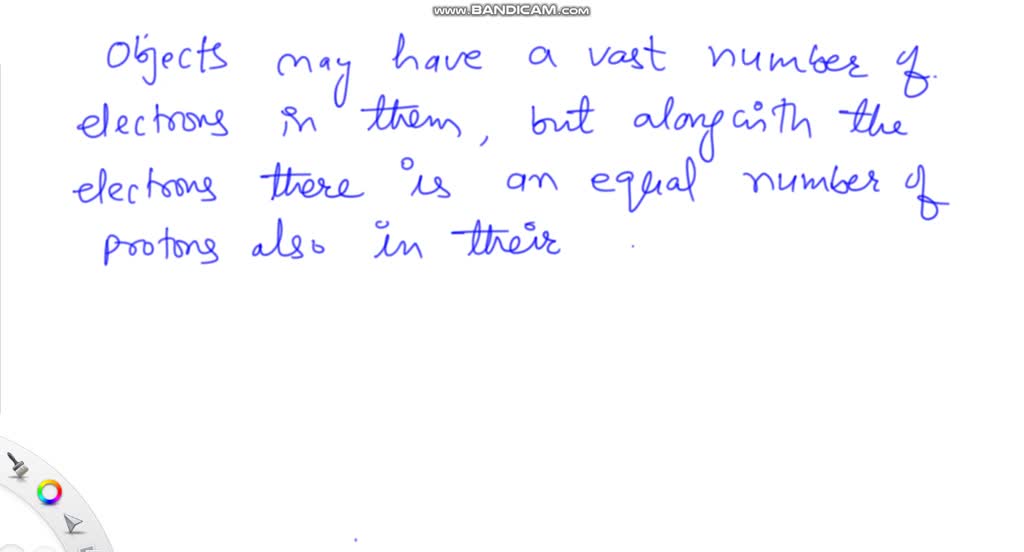 www.BANDICAM.com
Objects may have a vast number of
electrons in them, but alongwith the
electrons there is an equal number of
protons also in their